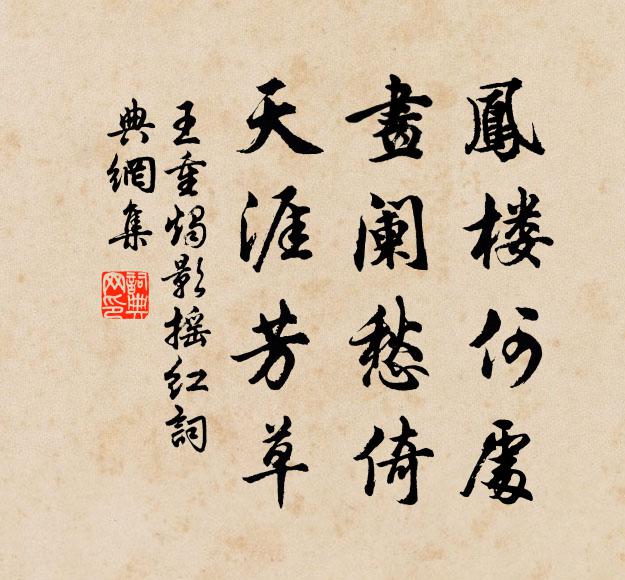 鳳樓何處
畫闌愁倚
天涯芳草
王重燭影搖紅詞
典網集
詞典網印